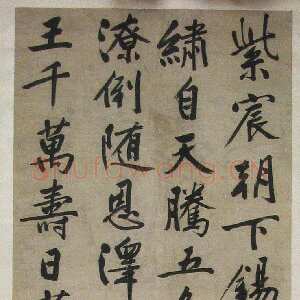 紫宸朝下錫
繡自天騰五
潦倒随恩澤
王千萬壽日
shufawang.cn